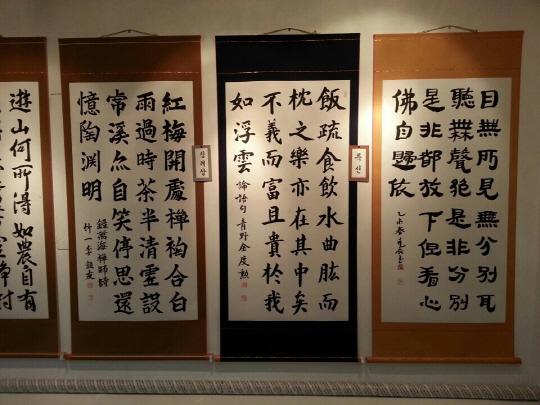 目無所見無分別耳
聽無聲絶是非分別
是非都放下但看心
佛自歸依
乙未春
특선
飯疏食飲水曲肱而
枕之樂亦在其中矣
不義而富且貴於我
如浮雲 論語句 青野金度勲
장려상
紅梅開處禪初合白
雨過時茶半清虛設
虎溪亦自笑停思還
憶陶淵明
錄萬海禪師詩
竹一李
遊山何所得如農自有